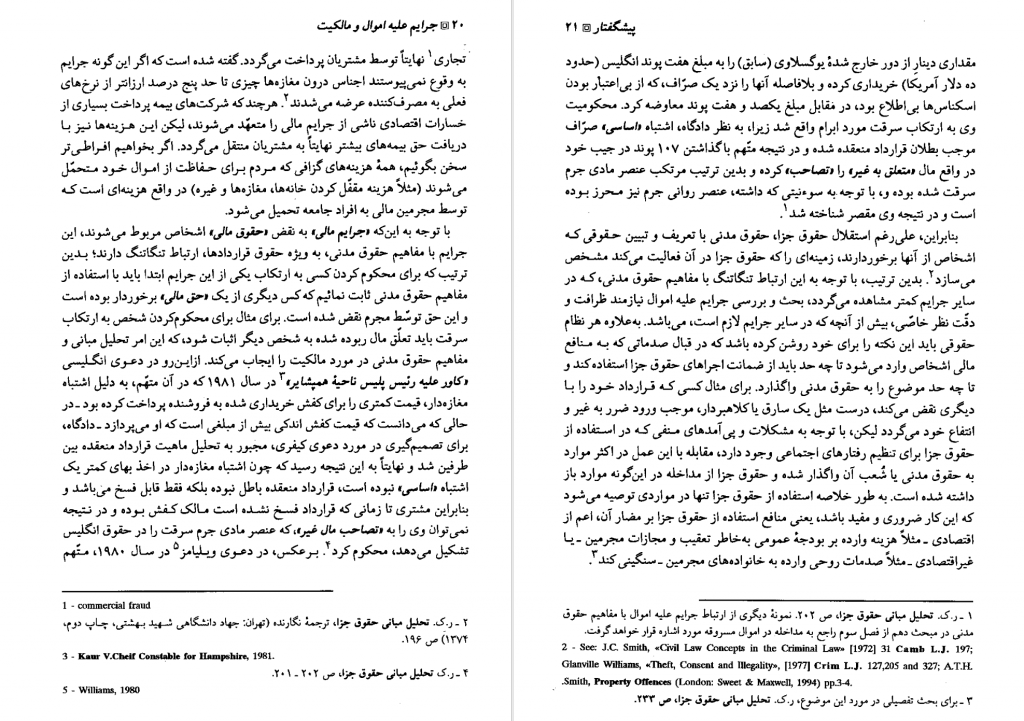 ۲۰ ▣ جرایم علیه اموال و مالکیت
تجاری۱ نهایتاً توسط مشتریان پرداخت می‌گردد. گفته شده است که اگر این گونه جرایم
به وقوع نمی‌پیوستند اجناس درون مغازه‌ها چیزی تا حد پنج درصد ارزانتر از نرخ‌های
فعلی به مصرف‌کننده عرضه می‌شدند۲. هرچند که شرکت‌های بیمه پرداخت بسیاری از
خسارات اقتصادی ناشی از جرایم مالی را متعهّد می‌شوند، لیکن این هزینه‌ها نیز با
دریافت حق بیمه‌های بیشتر نهایتاً به مشتریان منتقل می‌گردد. اگر بخواهیم افراطی‌تر
سخن بگوئیم، همهٔ هزینه‌های گزافی که مردم برای حفاظت از اموال خود متحمّل
می‌شوند (مثلاً هزینه مقفّل کردن خانه‌ها، مغازه‌ها و غیره) در واقع هزینه‌ای است که
توسط مجرمین مالی به افراد جامعه تحمیل می‌شود.
با توجه به این‌که «جرایم مالی» به نقض «حقوق مالی» اشخاص مربوط می‌شوند، این
جرایم با مفاهیم حقوق مدنی، به ویژه حقوق قراردادها، ارتباط تنگاتنگ دارند؛ بدین
ترتیب که برای محکوم کردن کسی به ارتکاب یکی از این جرایم ابتدا باید با استفاده از
مفاهیم حقوق مدنی ثابت نمائیم که کس دیگری از یک «حق مالی» برخوردار بوده است
و این حق توسّط مجرم نقض شده است. برای مثال برای محکوم‌کردن شخص به ارتکاب
سرقت باید تعلّق مال ربوده شده به شخص دیگر اثبات شود، که این امر تحلیل مبانی و
مفاهیم حقوق مدنی در مورد مالکیت را ایجاب می‌کند. ازاین‌رو در دعوی انگلیسی
«کاور علیه رئیس پلیس ناحیهٔ همپشایر»۳ در سال ۱۹۸۱ که در آن متهّم، به دلیل اشتباه
مغازه‌دار، قیمت کمتری را برای کفش خریداری شده به فروشنده پرداخت کرده بود ـ در
حالی که می‌دانست که قیمت کفش اندکی بیش از مبلغی است که او می‌پردازد ـ دادگاه،
برای تصمیم‌گیری در مورد دعوی کیفری، مجبور به تحلیل ماهیت قرارداد منعقده بین
طرفین شد و نهایتاً به این نتیجه رسید که چون اشتباه مغازه‌دار در اخذ بهای کمتر یک
اشتباه «اساسی» نبوده است، قرارداد منعقده باطل نبوده بلکه فقط قابل فسخ می‌باشد و
بنابراین مشتری تا زمانی که قرارداد فسخ نشده است مالک کفش بوده و در نتیجه
نمی‌توان وی را به «تصاحب مال غیر»، که عنصر مادی جرم سرقت را در حقوق انگلیس
تشکیل می‌دهد، محکوم کرد۴. برعکس، در دعوی ویلیامز۵ در سال ۱۹۸۰، متّهم
1 - commercial fraud
۲ ـ ر.ک. تحلیل مبانی حقوق جزا، ترجمهٔ نگارنده (تهران: جهاد دانشگاهی شهید بهشتی، چاپ دوم،
۱۳۷۴) ص ۱۹۶.
3 - Kaur V.Cheif Constable for Hampshire, 1981.
۴ ـ ر.ک تحلیل مبانی حقوق جزا، ص ۲۰۲ ـ ۲۰۱.
5 - Williams, 1980
پیشگفتار ▣ ۲۱
مقداری دینارِ از دور خارج شدهٔ یوگسلاوی (سابق) را به مبلغ هفت پوند انگلیس (حدود
ده دلار آمریکا) خریداری کرده و بلافاصله آنها را نزد یک صرّاف، که از بی‌اعتبار بودن
اسکناس‌ها بی‌اطلاع بود، در مقابل مبلغ یکصد و هفت پوند معاوضه کرد. محکومیت
وی به ارتکاب سرقت مورد ابرام واقع شد زیرا، به نظر دادگاه، اشتباه «اساسی» صرّاف
موجب بطلان قرارداد منعقده شده و در نتیجه متّهم با گذاشتن ۱۰۷ پوند در جیب خود
در واقع مال «متعلق به غیر» را «تصاحب» کرده و بدین ترتیب مرتکب عنصر مادی جرم
سرقت شده بوده و، با توجه به سوءنیتی که داشته، عنصر روانی جرم نیز محرز بوده
است و در نتیجه وی مقصر شناخته شد۱.
بنابراین، علی‌رغم استقلال حقوق جزا، حقوق مدنی با تعریف و تبیین حقوقی که
اشخاص از آنها برخوردارند، زمینه‌ای را که حقوق جزا در آن فعالیت می‌کند مشخص
می‌سازد۲. بدین ترتیب، با توجه به این ارتباط تنگاتنگ با مفاهیم حقوق مدنی، که در
سایر جرایم کمتر مشاهده می‌گردد، بحث و بررسی جرایم علیه اموال نیازمند ظرافت و
دقّت نظر خاصّی، بیش از آنچه که در سایر جرایم لازم است، می‌باشد. به‌علاوه هر نظام
حقوقی باید این نکته را برای خود روشن کرده باشد که در قبال صدماتی که به منافع
مالی اشخاص وارد می‌شود تا چه حد باید از ضمانت اجراهای حقوق جزا استفاده کند و
تا چه حد موضوع را به حقوق مدنی واگذارد. برای مثال کسی که قرارداد خود را با
دیگری نقض می‌کند، درست مثل یک سارق یا کلاهبردار، موجب ورود ضرر به غیر و
انتفاع خود می‌گردد لیکن، با توجه به مشکلات و پی‌آمدهای منفی که در استفاده از
حقوق جزا برای تنظیم رفتارهای اجتماعی وجود دارد، مقابله با این عمل در اکثر موارد
به حقوق مدنی یا شُعب آن واگذار شده و حقوق جزا از مداخله در این‌گونه موارد باز
داشته شده است. به طور خلاصه استفاده از حقوق جزا تنها در مواردی توصیه می‌شود
که این کار ضروری و مفید باشد، یعنی منافع استفاده از حقوق جزا بر مضار آن، اعم از
اقتصادی ـ مثلاً هزینه وارده بر بودجهٔ عمومی به‌خاطر تعقیب و مجازات مجرمین ـ یا
غیراقتصادی ـ مثلاً صدمات روحی وارده به خانواده‌های مجرمین ـ سنگینی کند۳.
۱ ـ ر.ک. تحلیل مبانی حقوق جزا، ص ۲۰۲. نمونهٔ دیگری از ارتباط جرایم علیه اموال با مفاهیم حقوق
مدنی در مبحث دهم از فصل سوم راجع به مداخله در اموال مسروقه مورد اشاره قرار خواهدگرفت.
2 - See: J.C. Smith, «Civil Law Concepts in the Criminal Law» [1972] 31 Camb L.J. 197;
Glanville Williams, «Theft, Consent and Illegality», [1977] Crim L.J. 127,205 and 327; A.T.H.
.Smith, Property Offences (London: Sweet & Maxwell, 1994) pp.3-4.
۳ ـ برای بحث تفصیلی در مورد این موضوع، ر.ک. تحلیل مبانی حقوق جزا، ص ۲۳۳.